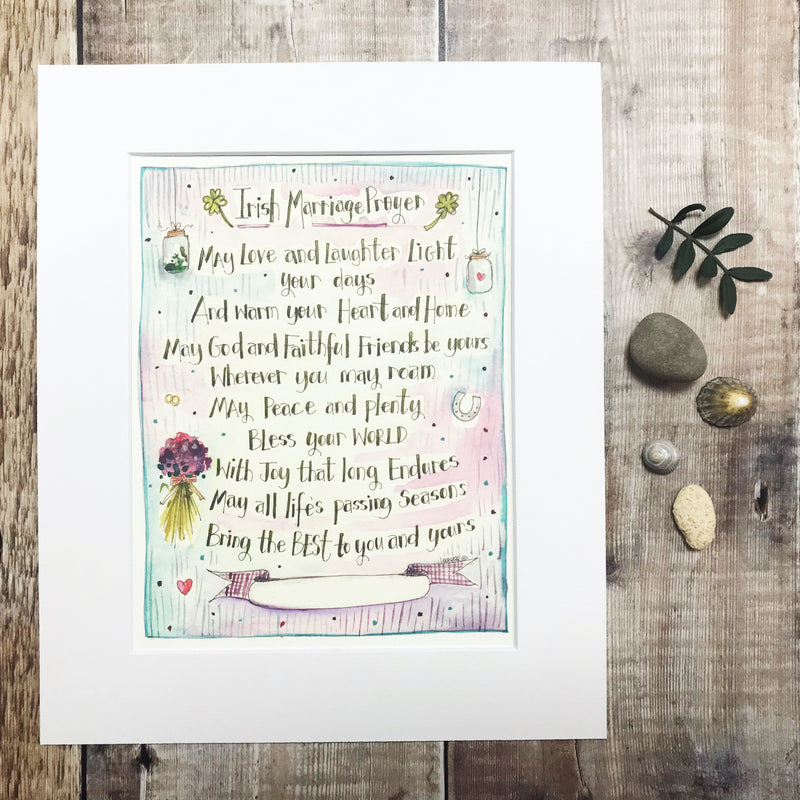 Irish Marriage Prayer
May Love and Laughter Light
your days
And warm your Heart and Home
May God and Faithful Friends be yours
Wherever you may roam
May Peace and plenty
Bless your WORLD
With Joy that long Endures
May all life's passing Seasons
Bring the BEST to you and yours